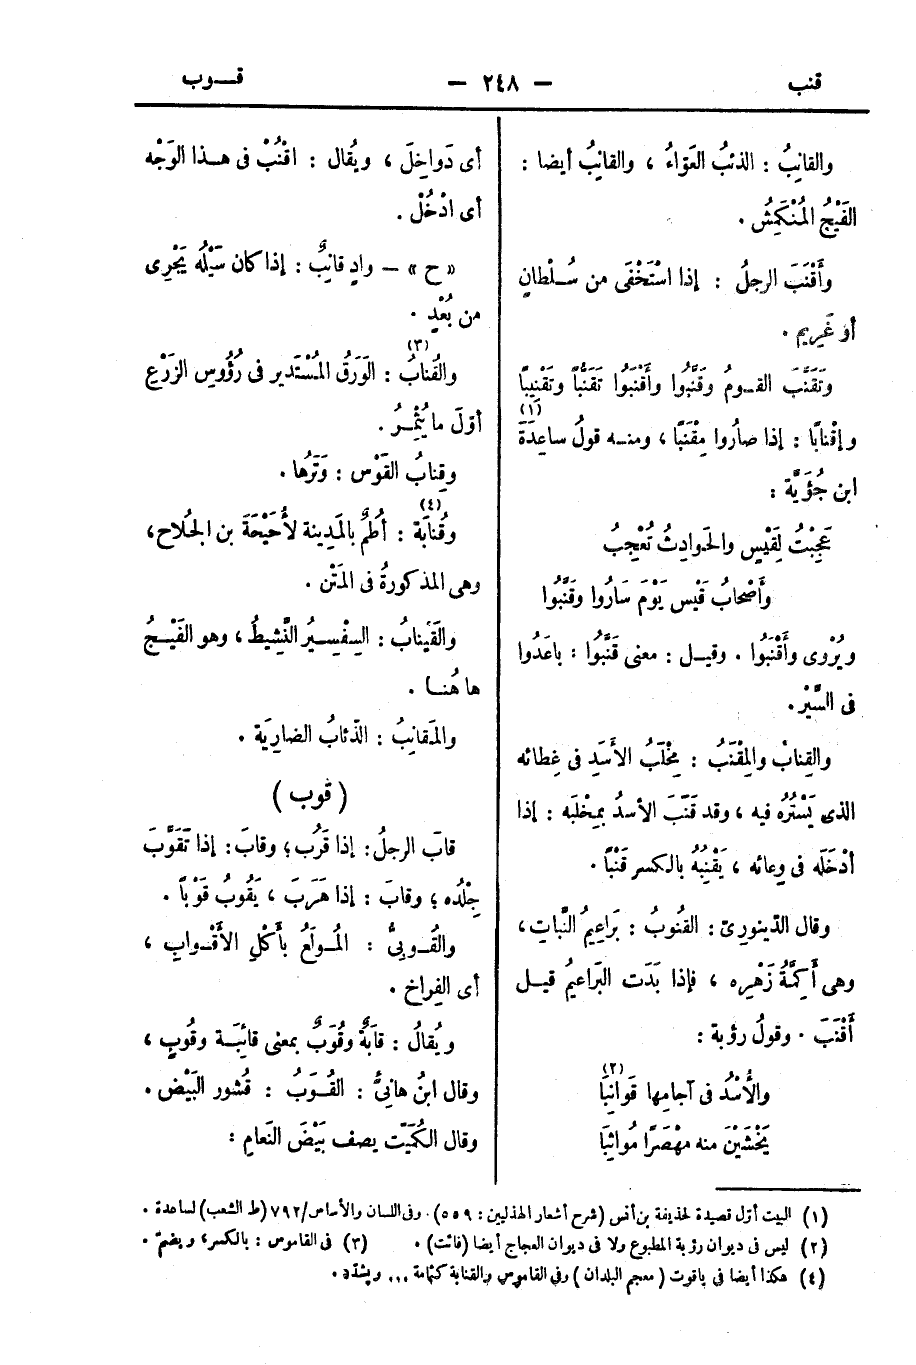 قنب
— ٢٤٨ —
قــوب
والقانِبُ : الذئبُ العَوّاءُ ، والقانِبُ أيضا :
الفَيْجُ المُنْكَمِشُ .
وأَقْنَبَ الرجلُ : إذا اسْتَخْفَى من سُـلْطانٍ
أو غَرِيمٍ .
وتَقَنَّبَ القـومُ وقَنَّبُوا وأَقْنَبُوا تَقَنُّباً وتَقْنِيباً
وإقْنابًا : إذا صارُوا مِقْنَبًا ، ومنـه قولُ ساعِدَةَ (١)
ابن جُؤَيَّة :
عَجِبْتُ لِقَيْسٍ والحَوادِثُ تُعْجِبُ
وأَصْحابُ قَيْس يَوْمَ سَارُوا وقَنَّبُوا
ويُرْوى وأَقْنَبُوا . وقيـل : معنى قَنَّبُوا : باعَدُوا
فى السَّيْر .
والقِنابُ والمِقْنَبُ : مِخْلَبُ الأَسَدِ فى غِطائه
الذى يَسْتُرُه فيه ، وقد قَنَّبَ الأسدُ بمِخْلَبَه : إذا
أدْخَلَه فى وِعائه ، يَقْنِبُهُ بالكسر قَنْباً .
وقال الدِّينورىّ : القُنوبُ : بَراعِيمُ النَّباتِ ،
وهى أَكِمَّةُ زَهْرِه ، فإذا بَدَت البَراعيمُ قيـل
أَقْنَبَ . وقولُ رؤبة :
والأُسْدُ فى آجامِها قَوانِبَا (٢)
يَخْشَيْنَ منه مِهْصَرًا مُواثِبَا
أى دَواخِلَ ، ويُقال : اقْنُبْ فى هـذا الوَجْه
أى ادْخُلْ .
« ح » — وادٍ قانِبٌ : إذا كان سَيْلُه يَجْرِى
من بُعْدٍ .
والقُنابُ (٣) : الوَرَقُ المُسْتَدير فى رُؤُوسِ الزَرْعِ
أوّلَ ما يُثْمِـرُ .
وقِنابُ القَوْس : وَتَرُها .
وقُنابَة (٤) : أُطُمٌ بالمَدِينة لأُحَيْحَةَ بن الجُلاح ،
وهى المذكورةُ فى المَتْن .
والقَيْنابُ : السِفْسِـيرُ النَّشِيطُ ، وهو الفَيْـجُ
ها هُنـا .
والمَقانِبُ : الذّئابُ الضارِيَة .
( قوب )
قابَ الرجلُ : إذا قَرُبَ ؛ وقابَ : إذا تَقَوَّبَ
جِلْدُه ؛ وقابَ : إذا هَرَبَ ، يَقُوبُ قَوْباً .
والقُـوبىُّ : المُولَعُ بأَكْلِ الأَقْـوابِ ،
أى الفِراخ .
ويُقالُ : قابَةٌ وقُوَبٌ بمعنى قائِبَـة وقُوبٍ ،
وقال ابنُ هانِئٍ : القُـوَبُ : قُشور البَيْض .
وقال الكُمَيْت يصف بَيْضَ النَعامِ :
(١) البيت أوّل قصيدة لحذيفة بن أنس (شرح أشعار الهذليين : ٥٥٩) . وفى اللسان والأساس/٧٩٢ (ط الشعب) لساعدة .
(٢) ليس فى ديوان رؤبة المطبوع ولا فى ديوان العجاج أيضا (فائت) . (٣) فى القاموس : بالكسر ، ويضمّ .
(٤) هكذا أيضا فى ياقوت ( معجم البلدان ) وفى القاموس والقنابة كثمامة ... ويشدّد .